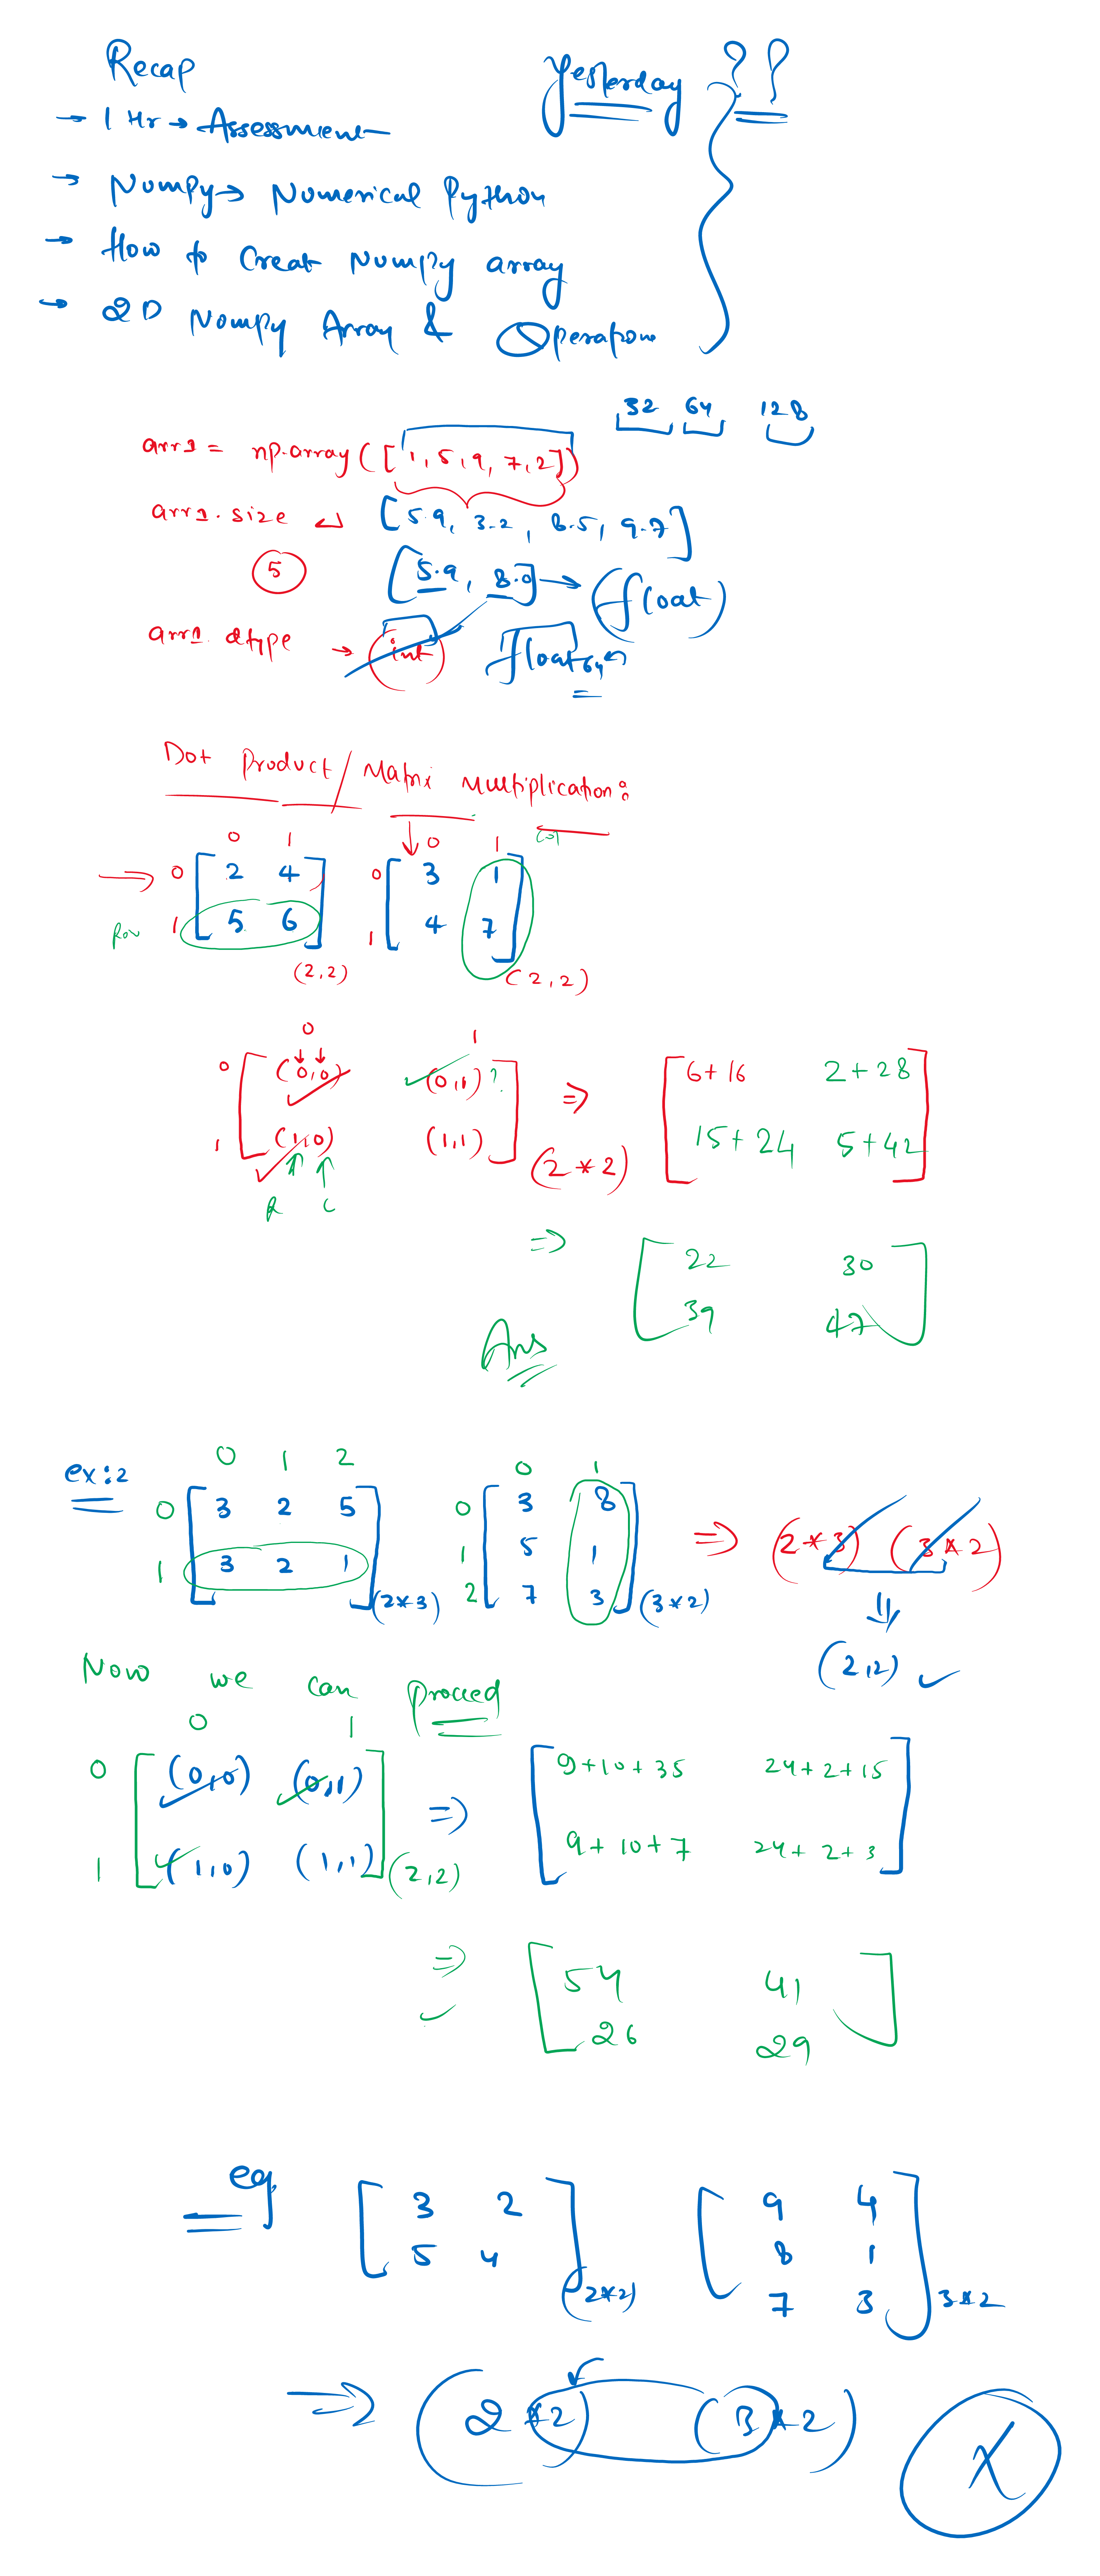 Recap
Yesterday ??
→ 1 Hr → Assessment
→ Numpy → Numerical Python
→ How to Creat Numpy array
→ 2D Numpy Array & Operation
32 64 128
arr1 = np.array([1,5,9,7,2])
arr1.size ↵ [5.9, 3.2, 8.5, 9.7]
5 [5.9, 8.0] → (float)
arr1.dtype → (int) float64
Dot Product / Matrix Multiplication:
0 1 0 1 Col
→ 0 [2 4] 0 [3 1]
Row 1 [5 6] 1 [4 7]
(2,2) (2,2)
0 1
0 [(0,0) (0,1)?] ⇒ [6+16 2+28]
1 [(1,0) (1,1)] (2*2) [15+24 5+42]
R C
⇒ [22 30]
[39 47]
Ans
ex:2 0 1 2 0 1
0 [3 2 5] 0 [3 8] ⇒ (2*3) (3*2)
1 [3 2 1] (2*3) 1 [5 1]
2 [7 3] (3*2)
⇓
(2,2) ✓
Now we can proceed
0 1
0 [(0,0) (0,1)] ⇒ [9+10+35 24+2+15]
1 [(1,0) (1,1)] (2,2) [9+10+7 24+2+3]
⇒ [54 41]
✓ [26 29]
eg [3 2] [9 4]
[5 4] (2*2) [8 1]
[7 3] 3*2
⇒ (2*2) (3*2) X